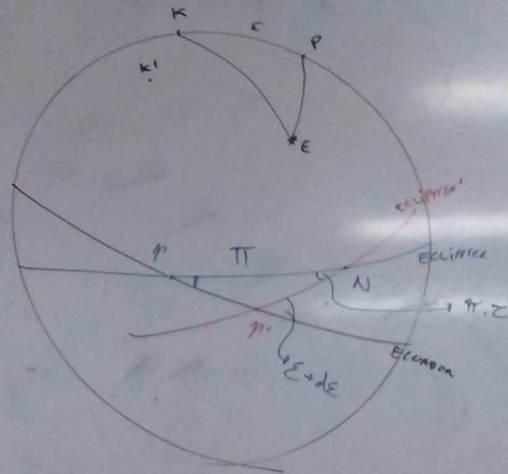 K ε P
K'
E
ecliptica'
Ecliptica
Π
N
π.τ
Ecuador
ε+dε